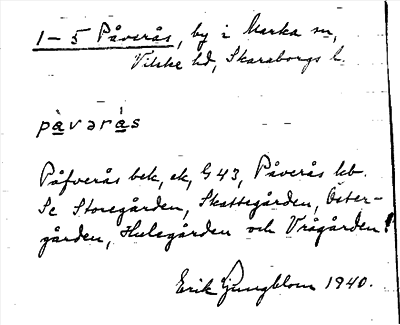 1-5 Påverås, by i Marka sn,
Vilske hd, Skaraborgs l.
pàvərás
Påfverås bek, ek, G 43, Påverås kb.
Se Storegården, Skattegården, Öster-
gården, Hulegården och Vrågården!
Erik Ljungblom 1940.